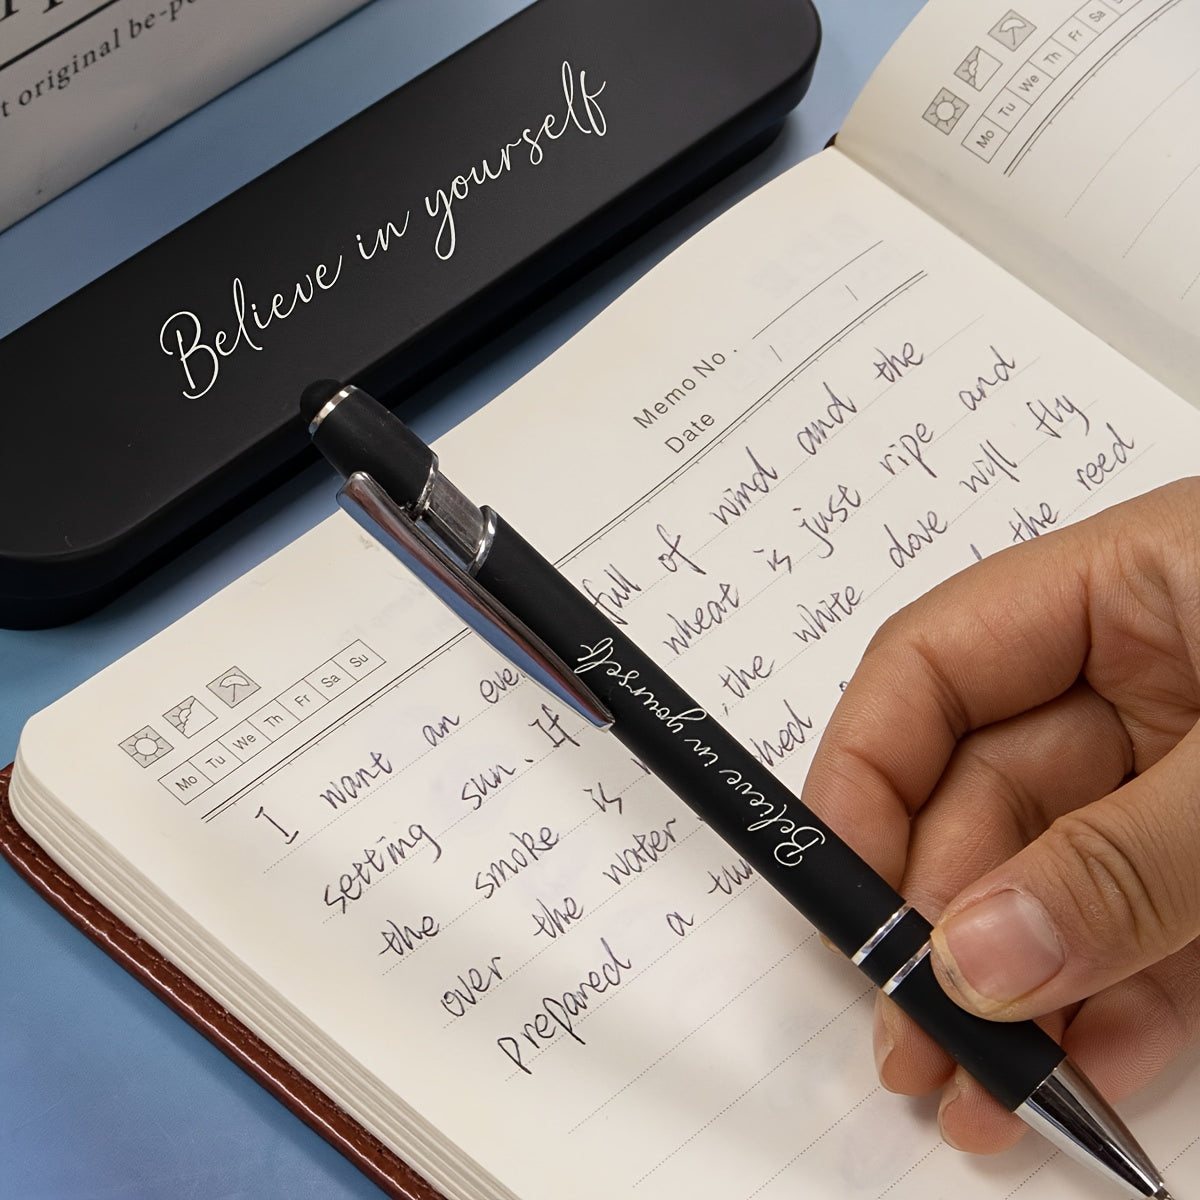 t original be-p
Believe in yourself
Mo Tu We Th Fr Sa
Memo No.
Date / /
Mo Tu We Th Fr Sa Su
I want an eve full of wind and the
setting sun. If wheat is just ripe and
the smoke is the white dove will fly
over the water the reed
Prepared a
Believe in yourself